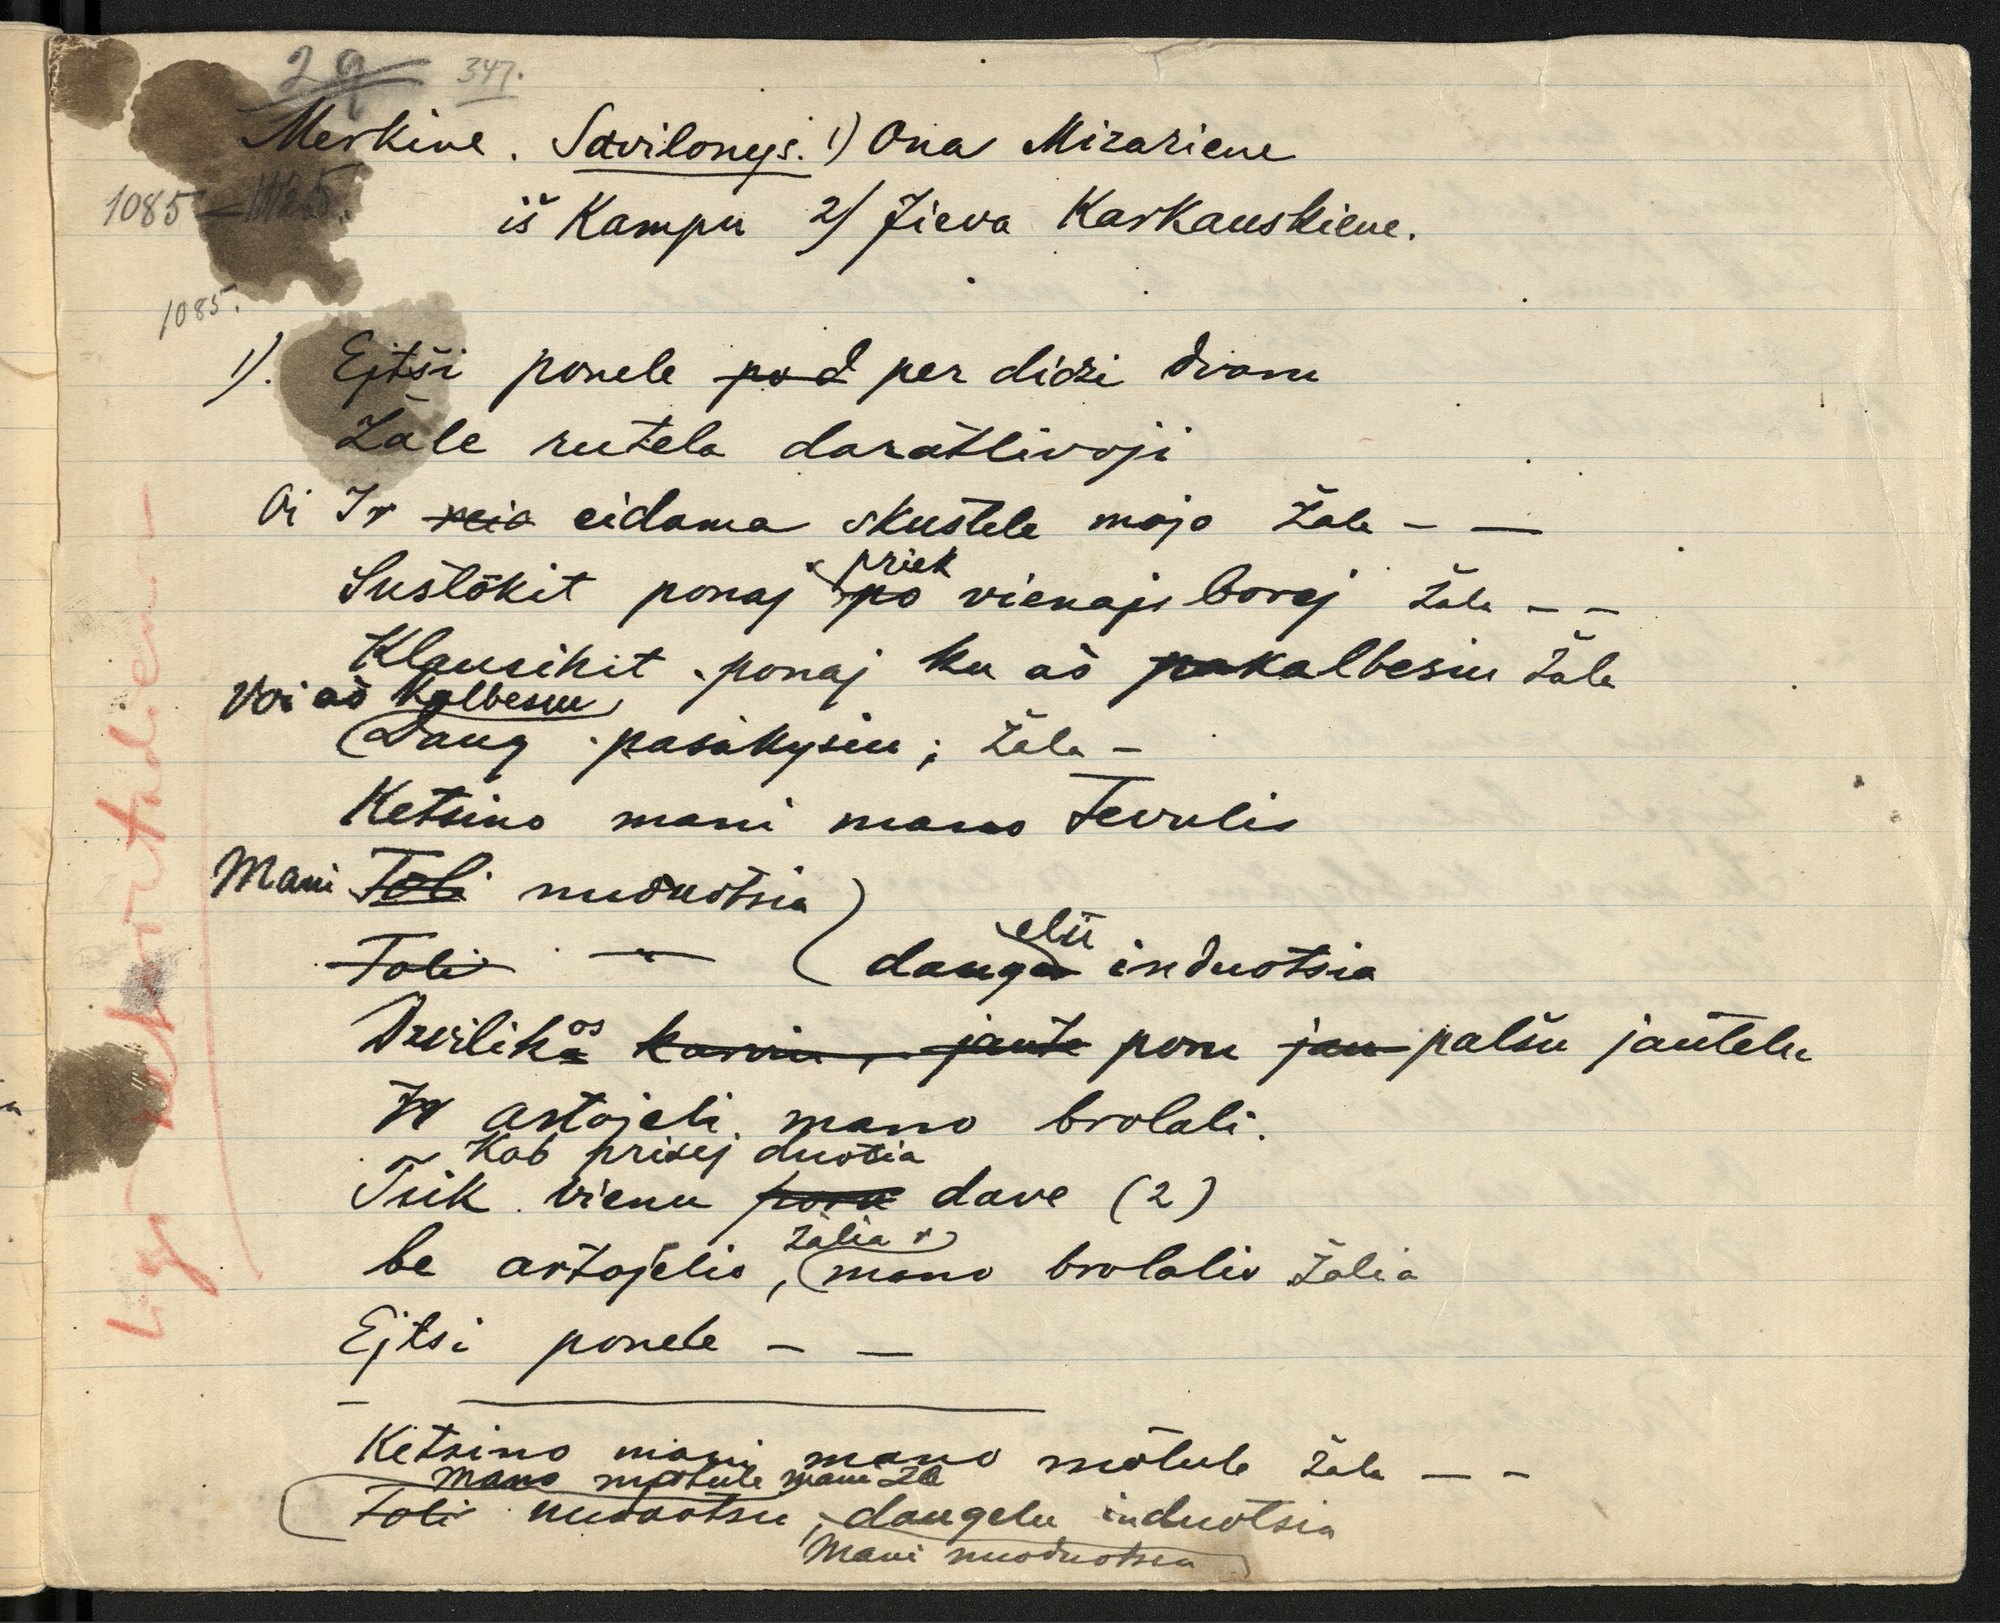 29 347.
Merkine. Savilonys. 1) Ona Mizariene
1085 – 1125.
iš Kampu 2) Jieva Karkauskiene.
1085.
1). Ejtši ponele pod per didzi dvaru
Žale rutela darātlivoji
Oi Ir neio eidama skustele mojo žale – —
priek
Sustōkit ponaj po vienajs boraj žale – –
Klausikit ponaj ku aš pakalbesiu žale
Voi aš kalbesiu
Daug pasakysiu; žale –
Ketsino mani mano Tevulis
Mani Toli nuduotsia
elu
Toli — " — daugu induotsia
Dvilikos karviu, jaute poru jau palšu jautelu
Ir artojeli mano brolali.
Kob prisej duotia
Tsik vienu pora dave (2)
žalia r
be artojelio, mano brolalio žalia
Ejtsi ponele – —
Ketsino mani mano mōtule žale — –
Mano motule mani žle
Toli nuduotsu, daugelu induotsia
Mani nuoduotsia